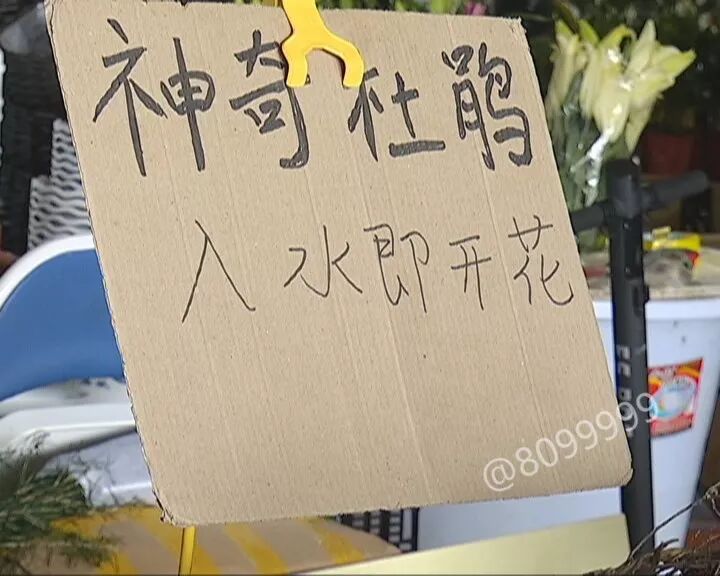 神奇杜鹃
入水即开花
@8099999